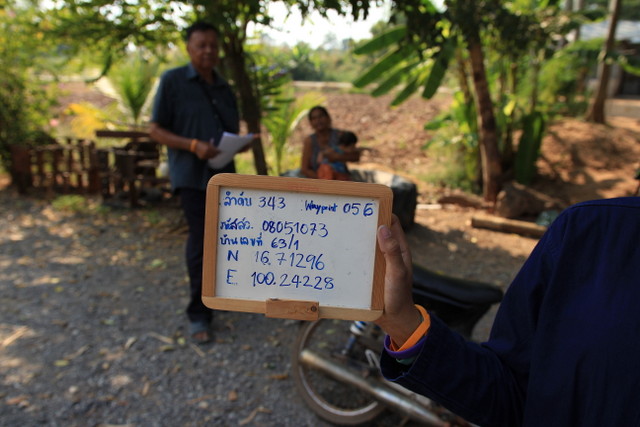 ลำดับ 343 Waypoint 056
รหัสสว. 08051073
บ้านเลขที่ 63/1
N 16.71296
E 100.24228